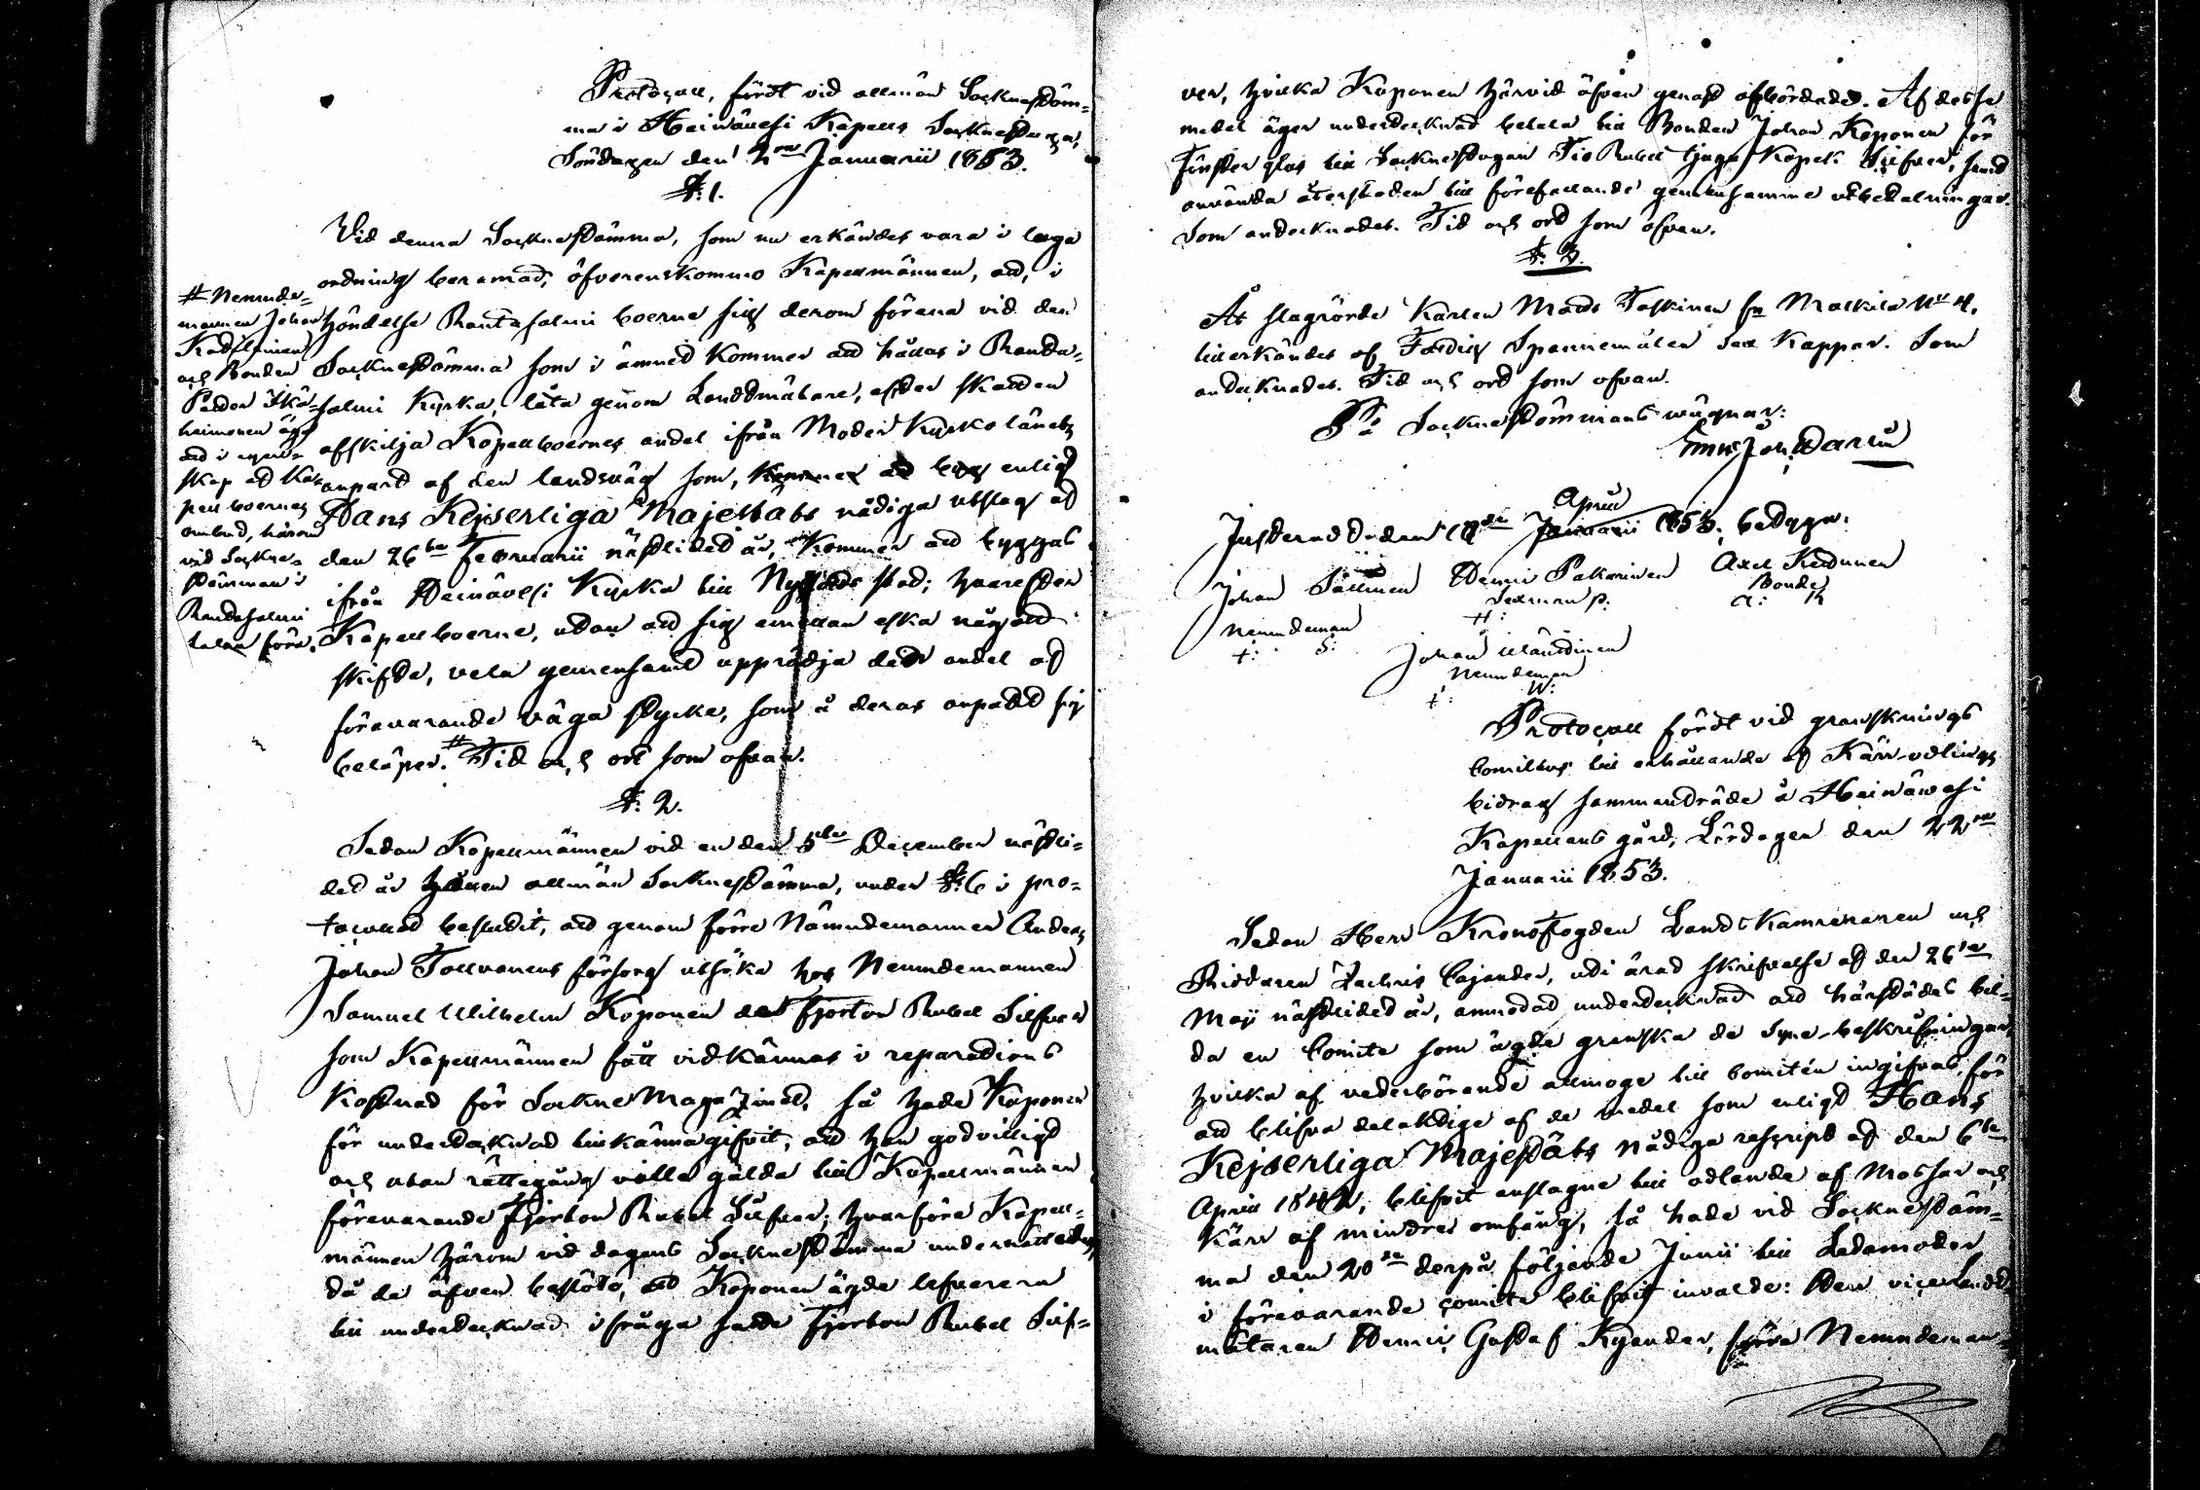 Protocoll, fördt vid allmän Sockneståm=
ma i Heinävesi Kapells Socknestuga,
Söndagen den 2ra Januarii 1853.
§: 1.
Vid denna Socknestämma, som nu erkändes vara i laga
ordning beramad, öfverenskommo Kapellmännen, att, i
händelse Rantasalmi boerne sig derom förena vid den
Socknestämma som i ämnet kommer att hållas i Randa=
salmi Kyrka, låta genom Landtmätare, efter skatten
afskilja Kapellboernes andel ifrån Moder Kyrko länets
anpart af den landsväg som, enligt
Hans Kejserliga Majestäts nådiga utslag af
den 26te Februarii nästledet år, kommer att byggas
ifrån Heinävesi Kyrka till Nyslotts stad; hvarefter
Kapellboerne, utan att sig emellan eska något
skifte, vela gemensamt upprödja dett andel af
förevarande väga stycke, som å deras anpart sig
belöper. # Tid och ort som ofvan.
# Nemnde=
mannen Johan
och Bonden
Petter Ikä=
heimonen äga
att i egen=
skap af Ka=
pellboernes
ombud, härom
vid Sockne=
stämman i
Randasalmi
talan föra.
§: 2.
Sedan Kapellmännen vid en den 5te December nästli=
det år hållen allmän Socknestämma, under §: 6 i pro=
tocollet beslutit, att genom förre Nämndemannen Anders
Johan Tollvanens försorg utsöka hos Nemndemannen
Samuel Wilhelm Koponen de fjorton Rubel Silfver
som Kapellmännen fått vidkännas i reparations
Kostnad för Sockne Magazinet, så hade Koponen
för undertecknad tillkännagifvit, att han godvilligt
och utan rättegång ville gälda till Kapellmännen
förevarande Fjorton Rubel Silfver; hvarföre Kapell=
männen härom vid dagens Socknestämma underrättades,
då de äfven beslöto, att Koponen ägde lefverera
till undertecknad ifråga satte Fjorton Rubel Silf=
ver, hvilka Koponen härvid äfven genast afbördade. Af dessa
medel äger undertecknad betala till Bonden Johan Koponen för
Fönster glas till Socknestugan Tio Rubel tjugu Kopek Silfver, samt
använda återstoden till förefallande gemensamme utbetalningar.
Som antecknades. Tid och ort som ofvan.
§: 3.
Åt slagrörde Karlen Mats Taskinen fr. Malkila No 4,
tillerkändes af Fattig Spannemålen sex Kappar. Som
antecknades. Tid och ort som ofvan.
På Socknestämmans wägnar:
Justeradt den April 1853, betyga:
Johan Henric Pakarinen Axel
Nemndeman Sexman Bonde
Johan
Nemndeman
Protocoll fördt vid gransknings
Comitens till erhållande af Kärr-odlings
bidrag sammanträde å Heinäwesi
Kapellans gård, Lördagen den 22ra
Januarii 1853.
Sedan Herr Kronofogden Lands Kamreraren och
Riddaren Zachris Cajander, uti ärad skrifvelse af den 26te
Maji nästledet år, anmodat undertecknad att härstädes bil=
da en Comite som ägde granska de Syne-beskrifningar,
hvilka af vederbörande allmoge till Comitén ingifvas, för
att blifva delaktige af de medel som enligt Hans
Kejserliga Majestäts nådiga rescript af den 6te
April 1842, blifvit anslagne till odlande af Mossar och
Kärr af mindre omfång, så hade vid Socknestäm=
ma den 20de derpå följande Junii till Ledamöter
i förevarande comité blifvit invalde: Herr vice Landt=
mätaren Henric Gustaf Kyander, förre Nemndeman=